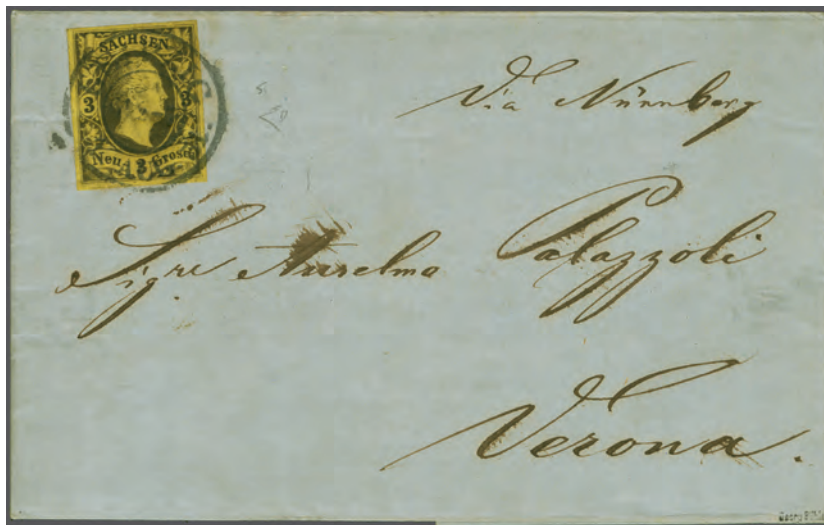 SACHSEN
3 3
Neu- Grosch
Via Nürnberg
Sigre Anselmo Palazzoli
Verona.